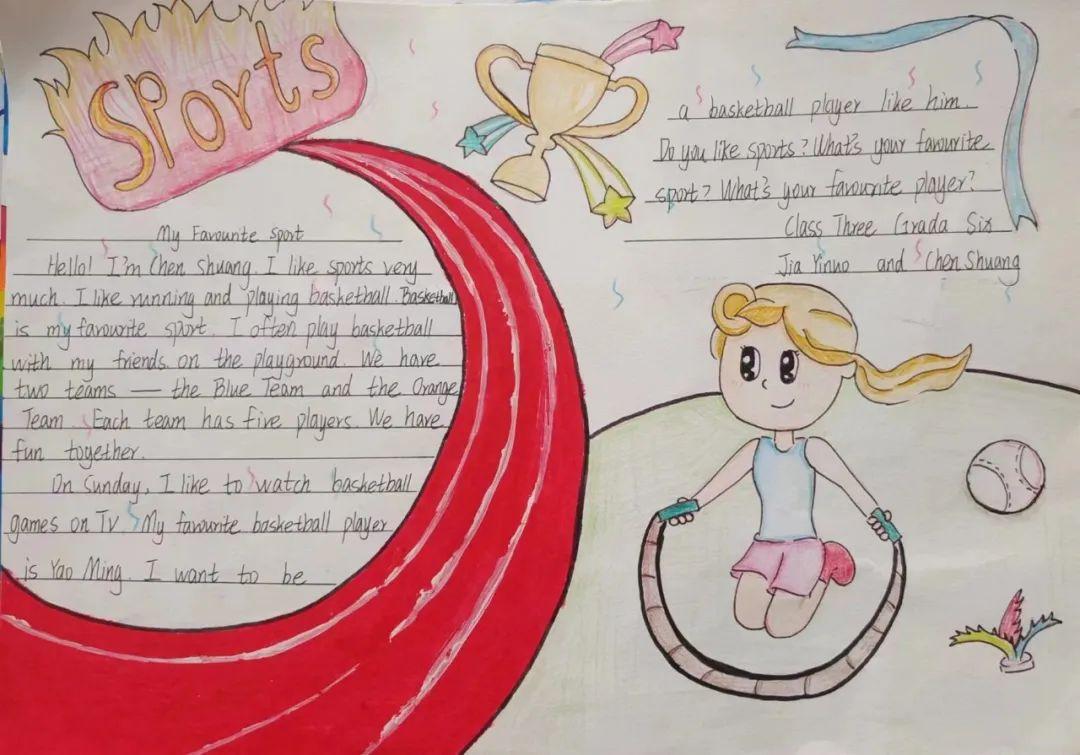 Sports
My Favourite sport
Hello! I'm Chen Shuang. I like sports very
much. I like running and playing basketball. Basketball
is my favourite sport. I often play basketball
with my friends on the playground. We have
two teams — the Blue Team and the Orange
Team. Each team has five players. We have
fun together.
On Sunday, I like to watch basketball
games on TV. My favourite basketball player
is Yao Ming. I want to be
a basketball player like him.
Do you like sports? What's your favourite
sport? What's your favourite player?
Class Three Grada Six
Jia Yinuo and Chen Shuang